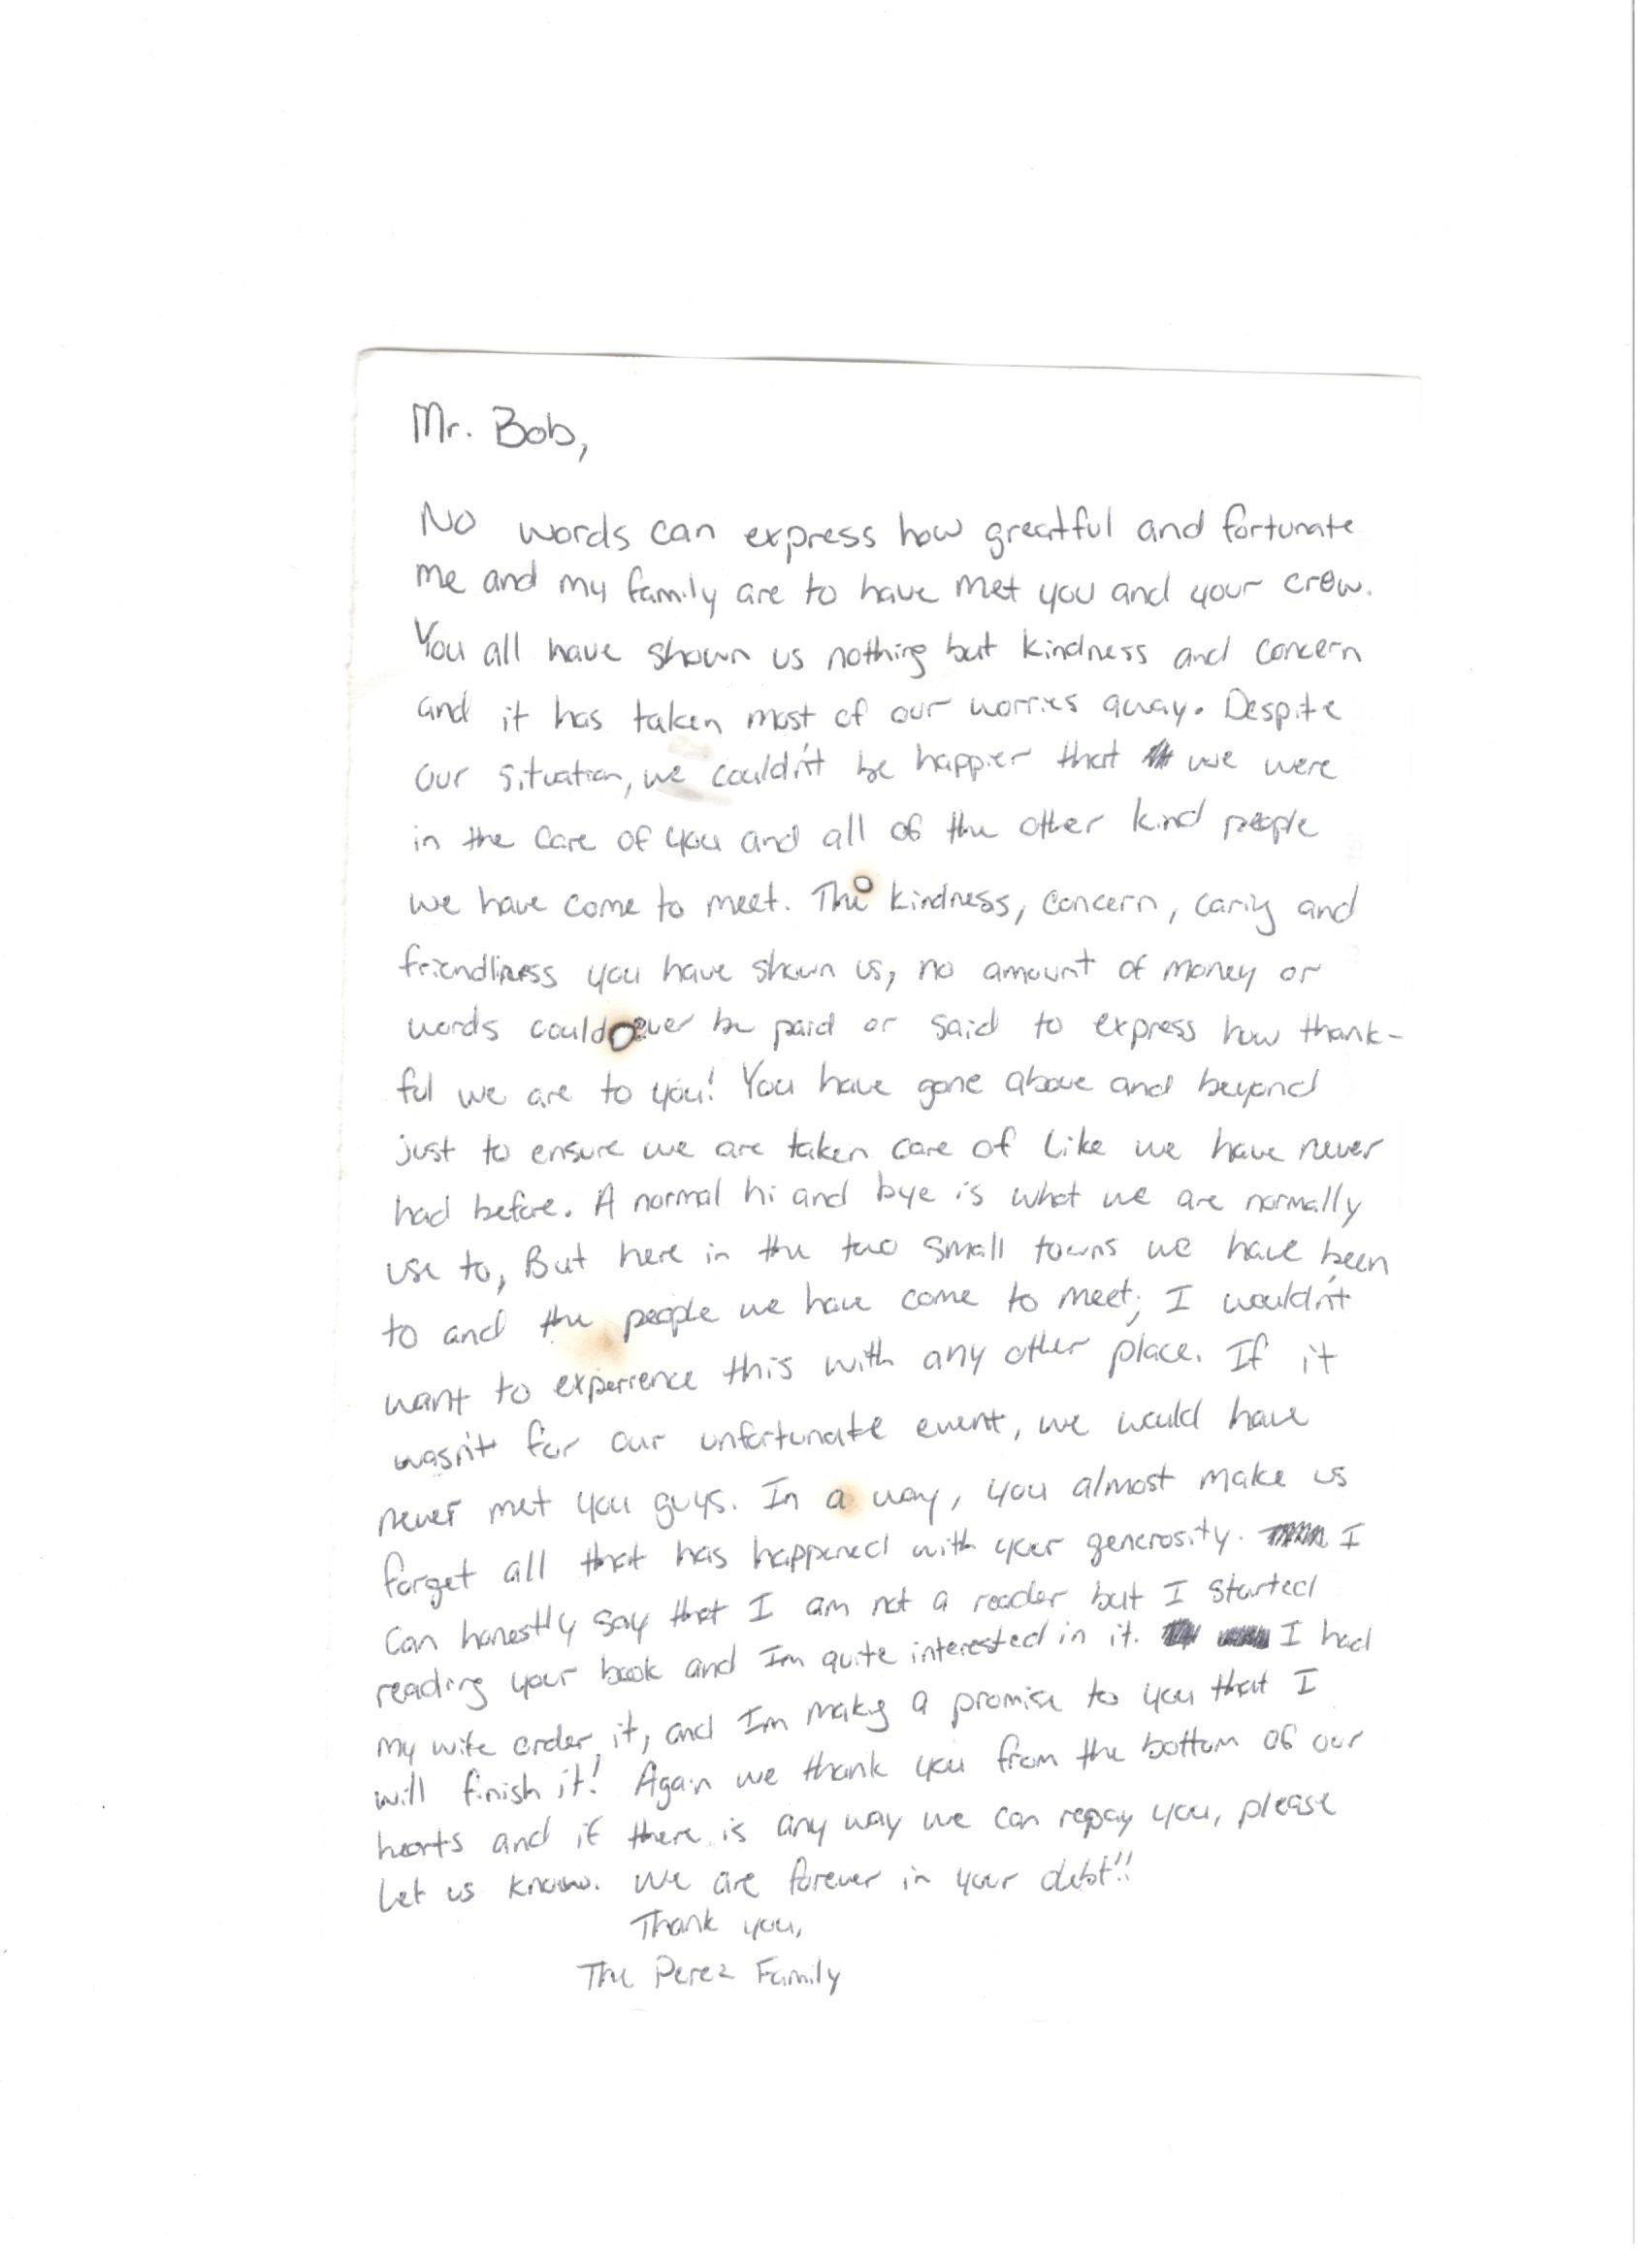 Mr. Bob,
No words can express how greatful and fortunate
me and my family are to have met you and your crew.
You all have shown us nothing but kindness and concern
and it has taken most of our worries away. Despite
our situation, we couldn't be happier that we were
in the care of you and all of the other kind people
we have come to meet. The kindness, concern, caring and
friendliness you have shown us, no amount of money or
words could ever be paid or said to express how thank-
ful we are to you! You have gone above and beyond
just to ensure we are taken care of like we have never
had before. A normal hi and bye is what we are normally
use to, But here in the two small towns we have been
to and the people we have come to meet, I wouldn't
want to experience this with any other place. If it
wasn't for our unfortunate event, we would have
never met you guys. In a way, you almost make us
forget all that has happened with your generosity. I
can honestly say that I am not a reader but I started
reading your book and Im quite interested in it. I had
my wife order it, and Im making a promise to you that I
will finish it! Again we thank you from the bottom of our
hearts and if there is any way we can repay you, please
let us know. We are forever in your debt!!
Thank you,
The Perez Family